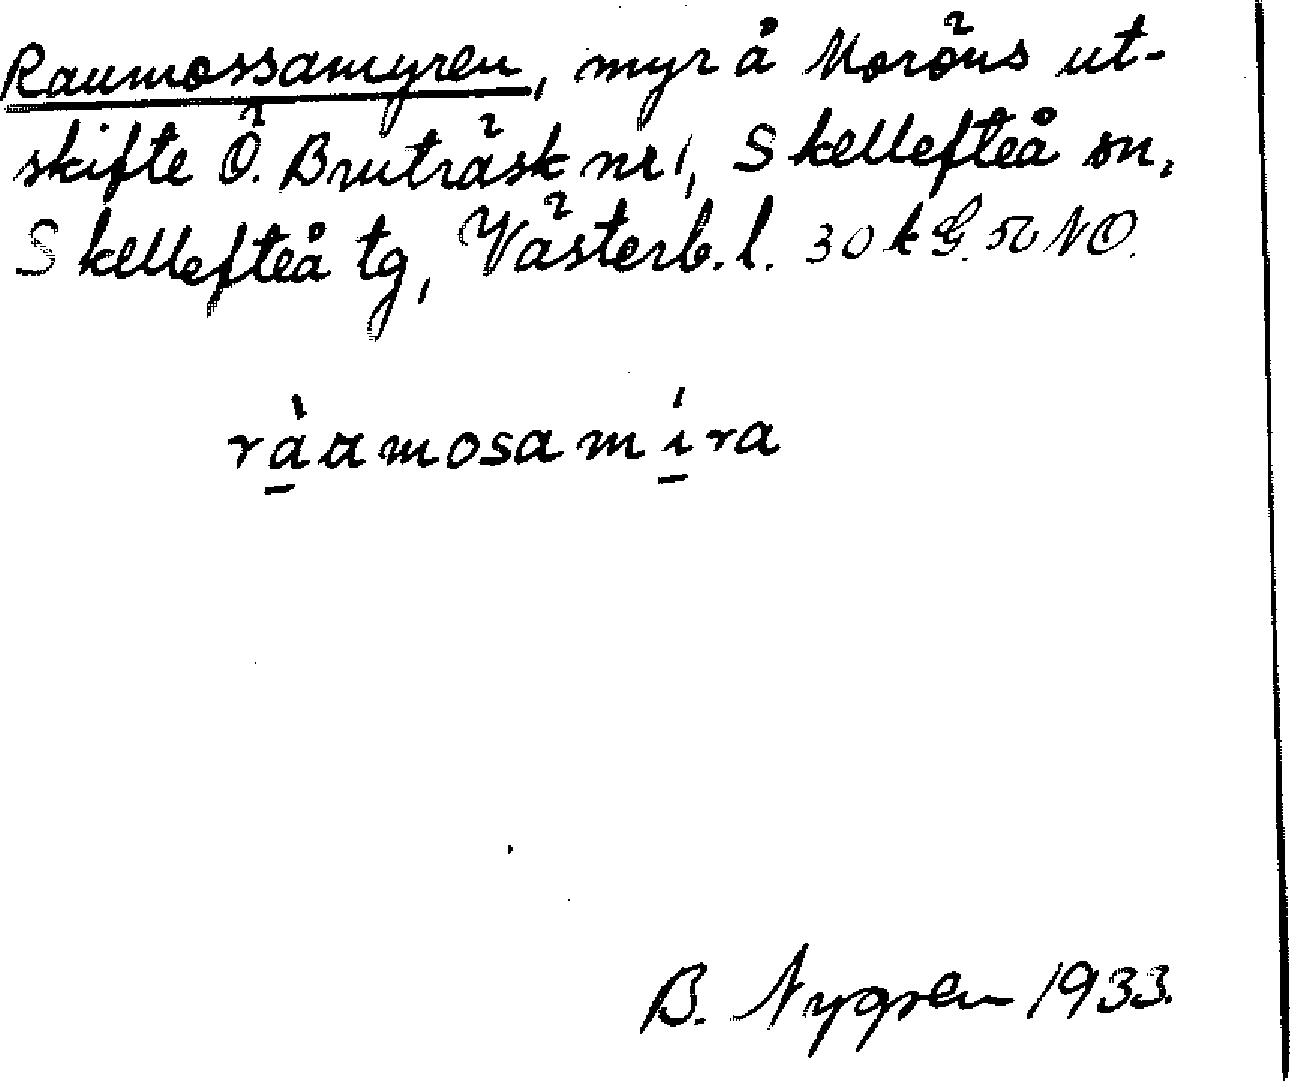 Raumossamyren, myr å Moröns ut-
skifte Ö. Bruträsk nr 1, Skellefteå sn,
Skellefteå tg, Västerb. l. 30 k G. 50 NO.
ràumosamíra
B. Nygren 1933.